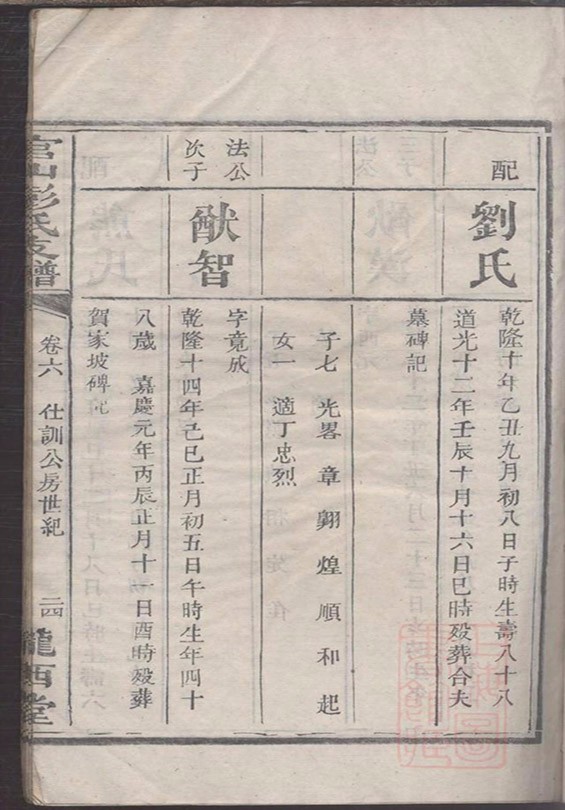 配
劉氏
乾隆十年乙丑九月初八日子時生壽八十八
道光十二年壬辰十月十六日巳時殁葬合夫
墓碑記
子七 光畧 章 翱 煌 順 和 起
女一 適丁忠烈
法公
次子
猷智
字竟成
乾隆十四年己巳正月初五日午時生年四十
八歲 嘉慶元年丙辰正月十一日酉時殁葬
賀家坡碑記
官山彭氏支譜
卷六 仕訓公房世紀
二四
隴西堂